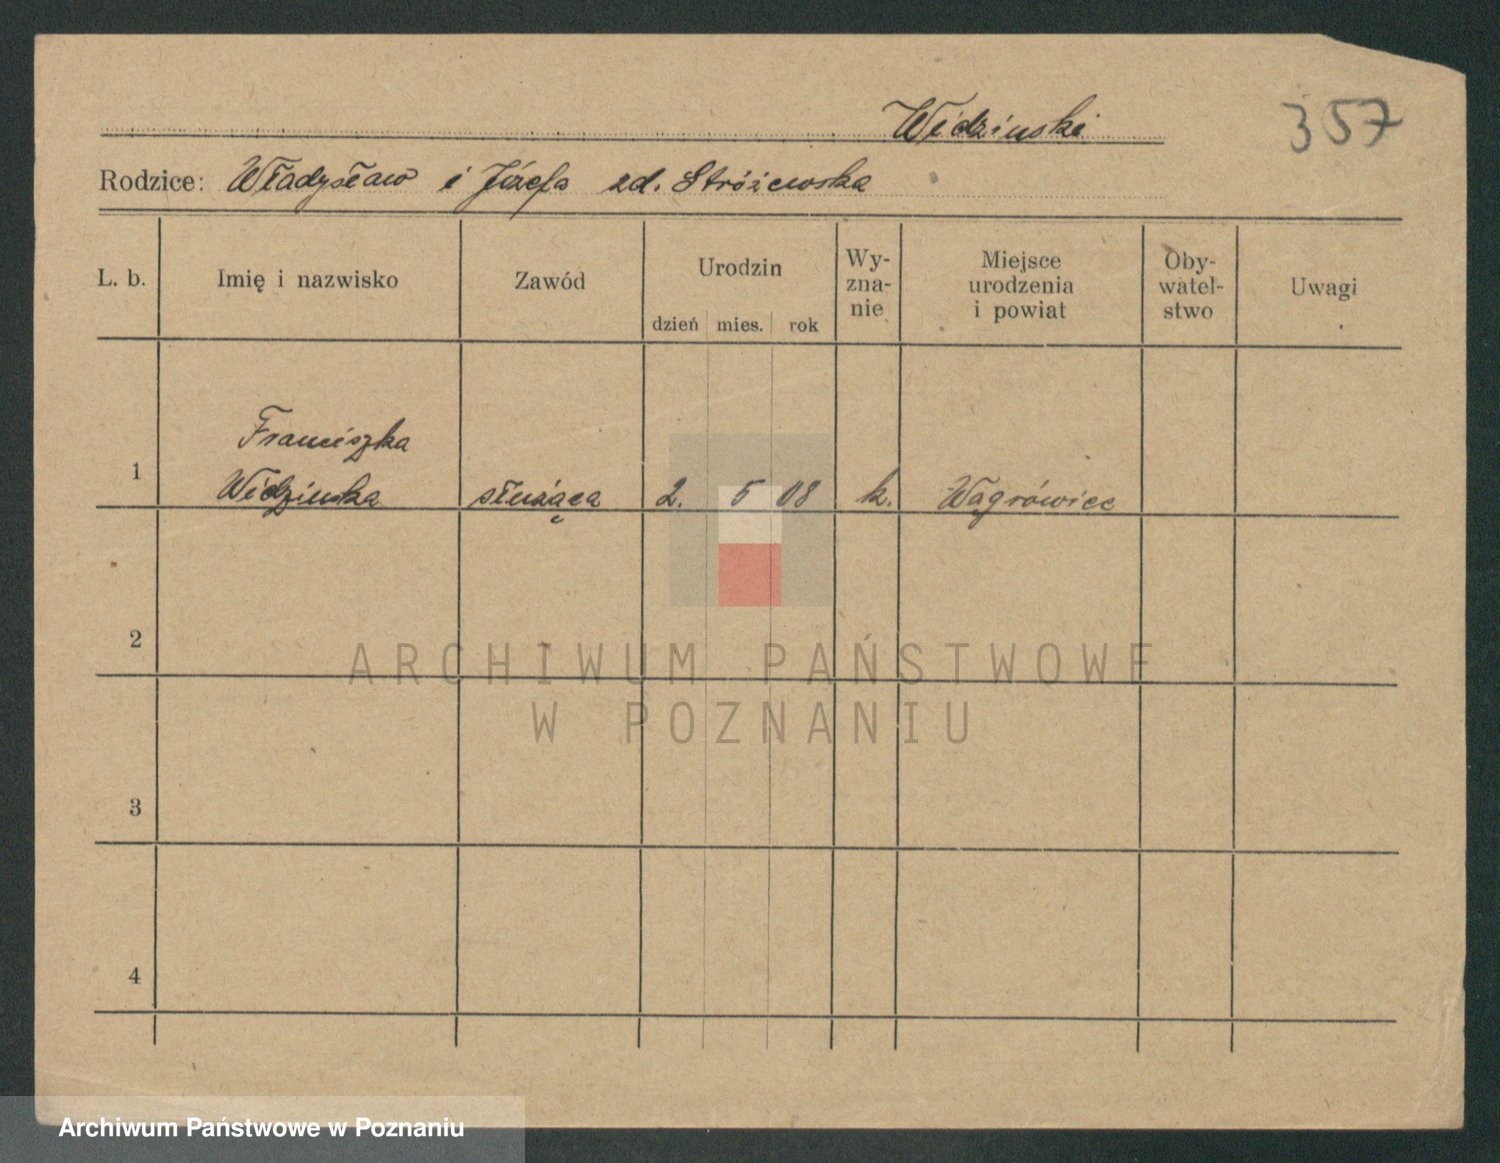 Widzinski
357
Rodzice: Władysław i Józefa zd. Stróżewska
L. b. Imię i nazwisko Zawód Urodzin dzień mies. rok Wy-znanie Miejsce urodzenia i powiat Oby-watel-stwo Uwagi
Franciszka
1 Widzinska służąca 2. 5 08 k. Wągrówiec
2
ARCHIWUM PAŃSTWOWE
W POZNANIU
3
4
Archiwum Państwowe w Poznaniu